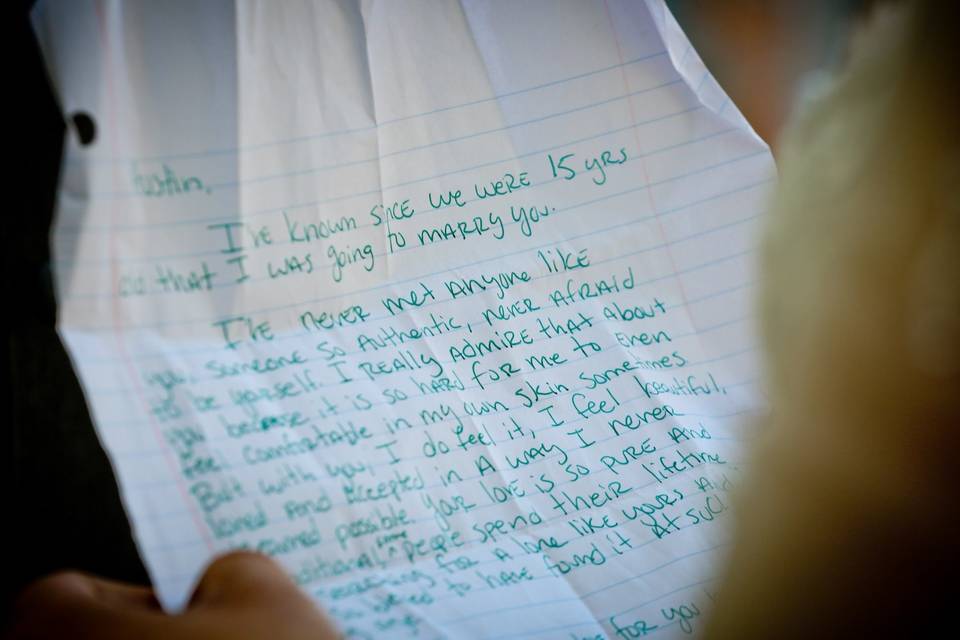 I've known since we were 15 yrs
old that I was going to marry you.
I've never met anyone like
you. someone so authentic, never afraid
to be yourself. I really admire that about
you because it is so hard for me to even
feel comfortable in my own skin sometimes
But with you, I do feel it, I feel beautiful,
loved and accepted in a way I never
possible. your love is so pure and
some people spend their lifetime
searching for a love like yours and
to have found it at such
for you